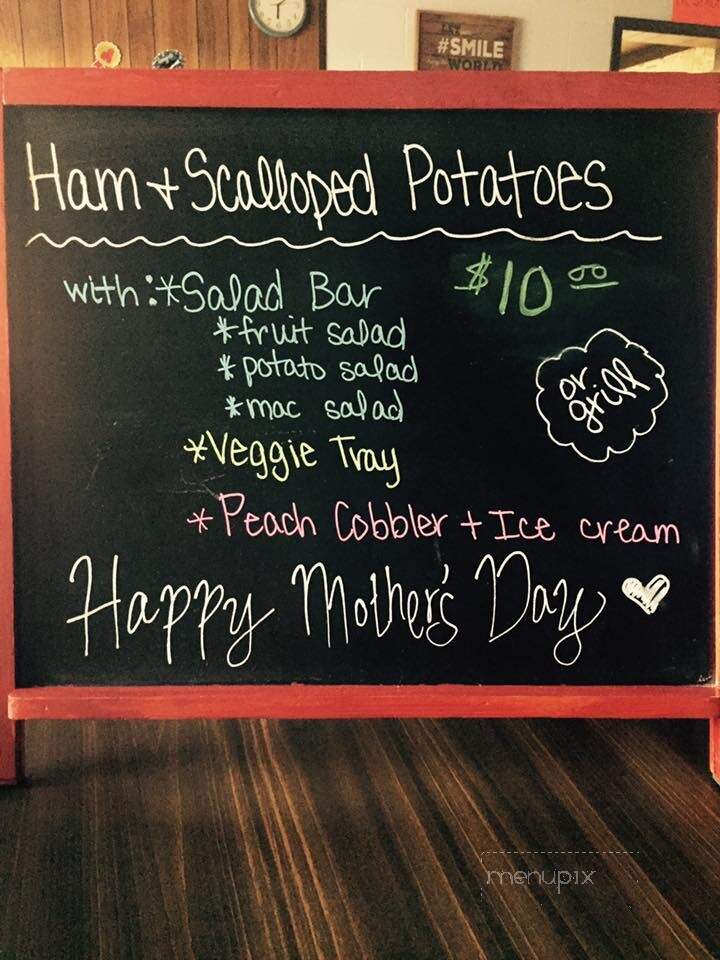 #SMILE
WORLD
Ham + Scalloped Potatoes
with: *Salad Bar
$10 00
*fruit salad
*potato salad
*mac salad
or
grill
*Veggie Tray
*Peach Cobbler + Ice cream
Happy Mother's Day
menupix